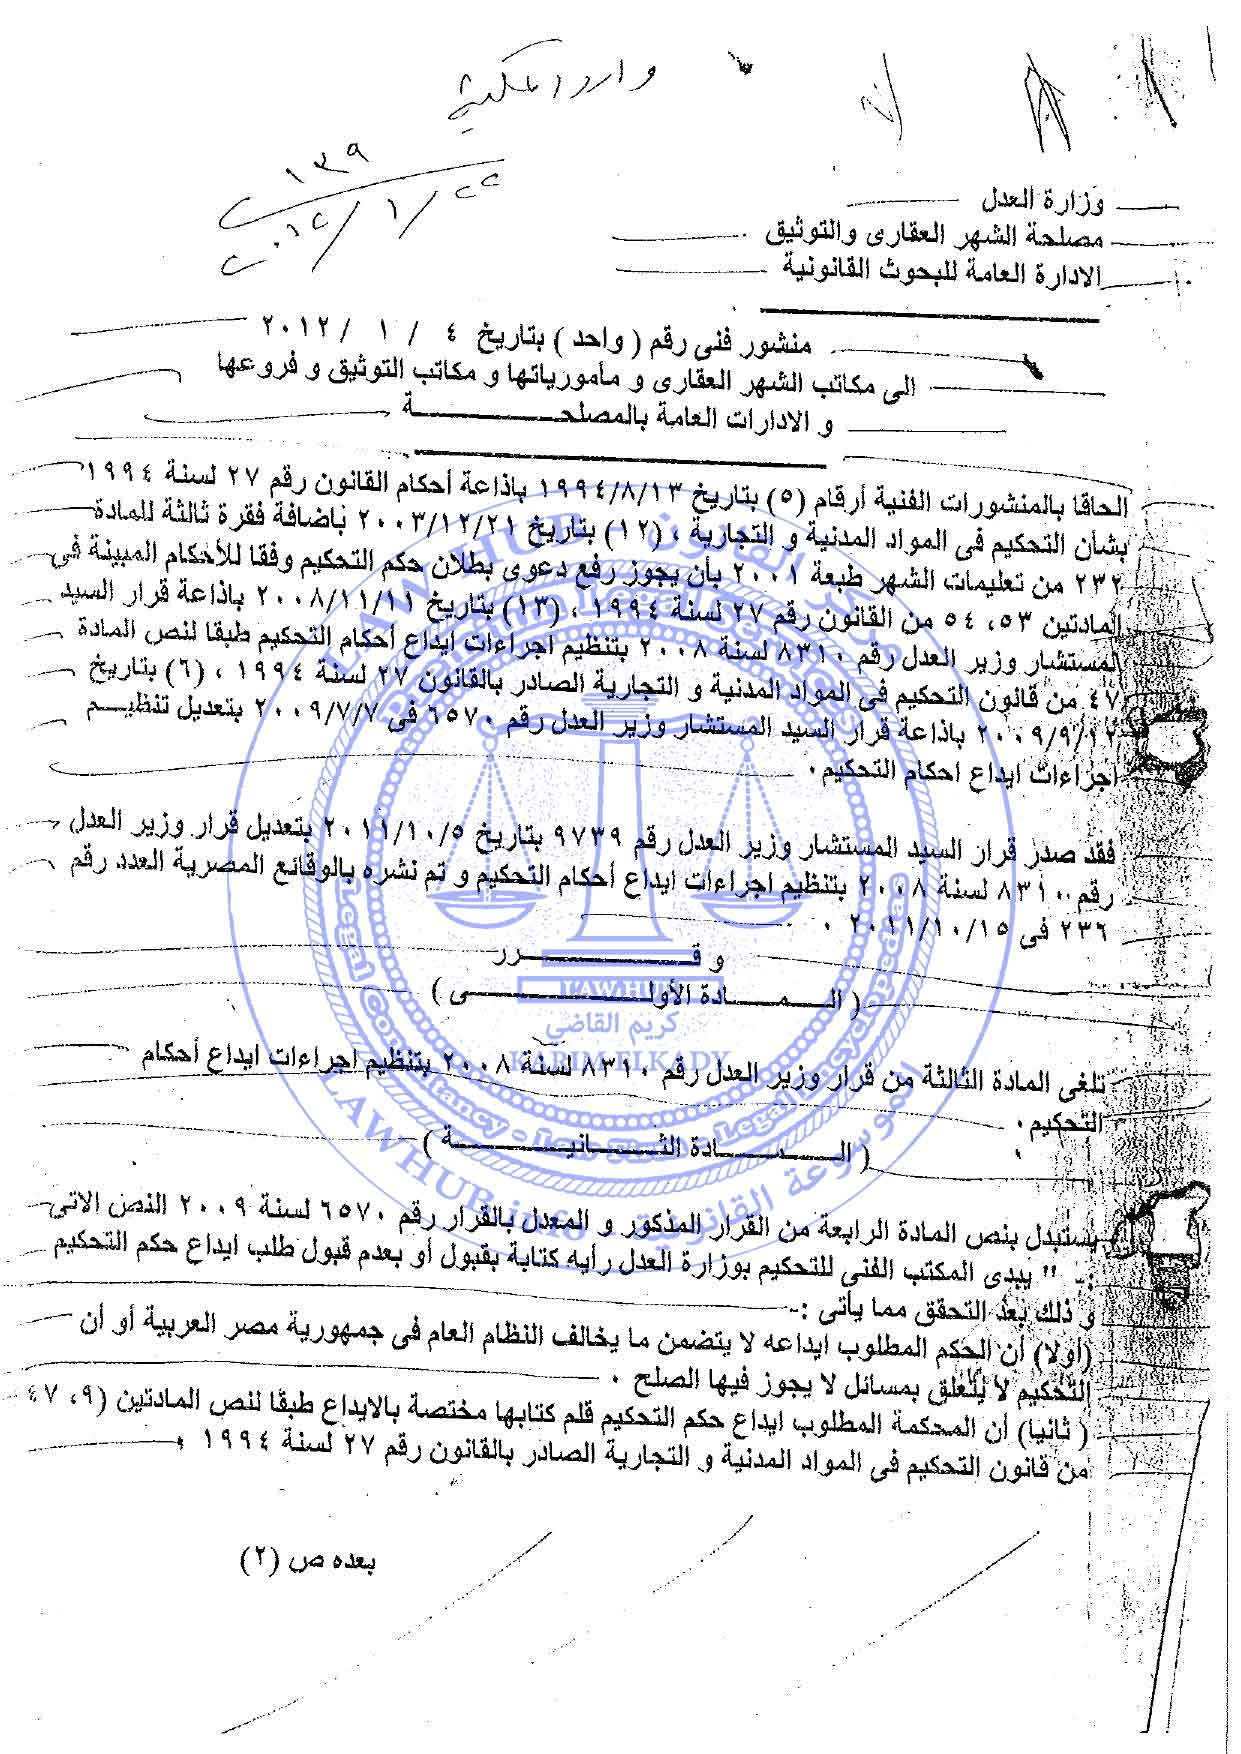 وارد المكتب
١٣٩
٢٠١٢/١/٢٢
وزارة العدل
مصلحة الشهر العقارى والتوثيق
الادارة العامة للبحوث القانونية
منشور فنى رقم ( واحد ) بتاريخ ٤ / ١ / ٢٠١٢
الى مكاتب الشهر العقارى و مأمورياتها و مكاتب التوثيق و فروعها
و الادارات العامة بالمصلحـــــــــة
الحاقا بالمنشورات الفنية أرقام (٥) بتاريخ ١٩٩٤/٨/١٣ باذاعة أحكام القانون رقم ٢٧ لسنة ١٩٩٤
بشان التحكيم فى المواد المدنية و التجارية ، (١٢) بتاريخ ٢٠٠٣/١٢/٢١ باضافة فقرة ثالثة للمادة
٢٣٢ من تعليمات الشهر طبعة ٢٠٠١ بأن يجوز رفع دعوى بطلان حكم التحكيم وفقا للأحكام المبينة فى
المادتين ٥٣، ٥٤ من القانون رقم ٢٧ لسنة ١٩٩٤ ، (١٣) بتاريخ ٢٠٠٨/١١/١١ باذاعة قرار السيد
المستشار وزير العدل رقم ٨٣١٠ لسنة ٢٠٠٨ بتنظيم اجراءات ايداع أحكام التحكيم طبقا لنص المادة
٤٧ من قانون التحكيم فى المواد المدنية و التجارية الصادر بالقانون ٢٧ لسنة ١٩٩٤ ، (٦) بتاريخ
٢٠٠٩/٩/١٢ باذاعة قرار السيد المستشار وزير العدل رقم ٦٥٧٠ فى ٢٠٠٩/٧/٧ بتعديل تنظيـــم
اجراءات ايداع احكام التحكيم .
فقد صدر قرار السيد المستشار وزير العدل رقم ٩٧٣٩ بتاريخ ٢٠١١/١٠/٥ بتعديل قرار وزير العدل
رقم ٨٣١٠ لسنة ٢٠٠٨ بتنظيم اجراءات ايداع أحكام التحكيم و تم نشره بالوقائع المصرية العدد رقم
٢٣٦ فى ٢٠١١/١٠/١٥ .
و قـــــــــــرر
( المـــــادة الأولـــــــــى )
تلغى المادة الثالثة من قرار وزير العدل رقم ٨٣١٠ لسنة ٢٠٠٨ بتنظيم اجراءات ايداع أحكام
التحكيم .
( المـــــادة الثـــانيـــــــة )
يستبدل بنص المادة الرابعة من القرار المذكور و المعدل بالقرار رقم ٦٥٧٠ لسنة ٢٠٠٩ النص الاتى
:- " يبدى المكتب الفنى للتحكيم بوزارة العدل رأيه كتابة بقبول أو بعدم قبول طلب ايداع حكم التحكيم
و ذلك بعد التحقق مما يأتى :-
(أولا) أن الحكم المطلوب ايداعه لا يتضمن ما يخالف النظام العام فى جمهورية مصر العربية أو أن
التحكيم لا يتعلق بمسائل لا يجوز فيها الصلح .
( ثانيا) أن المحكمة المطلوب ايداع حكم التحكيم قلم كتابها مختصة بالايداع طبقا لنص المادتين (٩، ٤٧
من قانون التحكيم فى المواد المدنية و التجارية الصادر بالقانون رقم ٢٧ لسنة ١٩٩٤ .
بعده ص (٢)
LAW HUB
كريم القاضى
KARIM ELKADY
LAWHUB.info